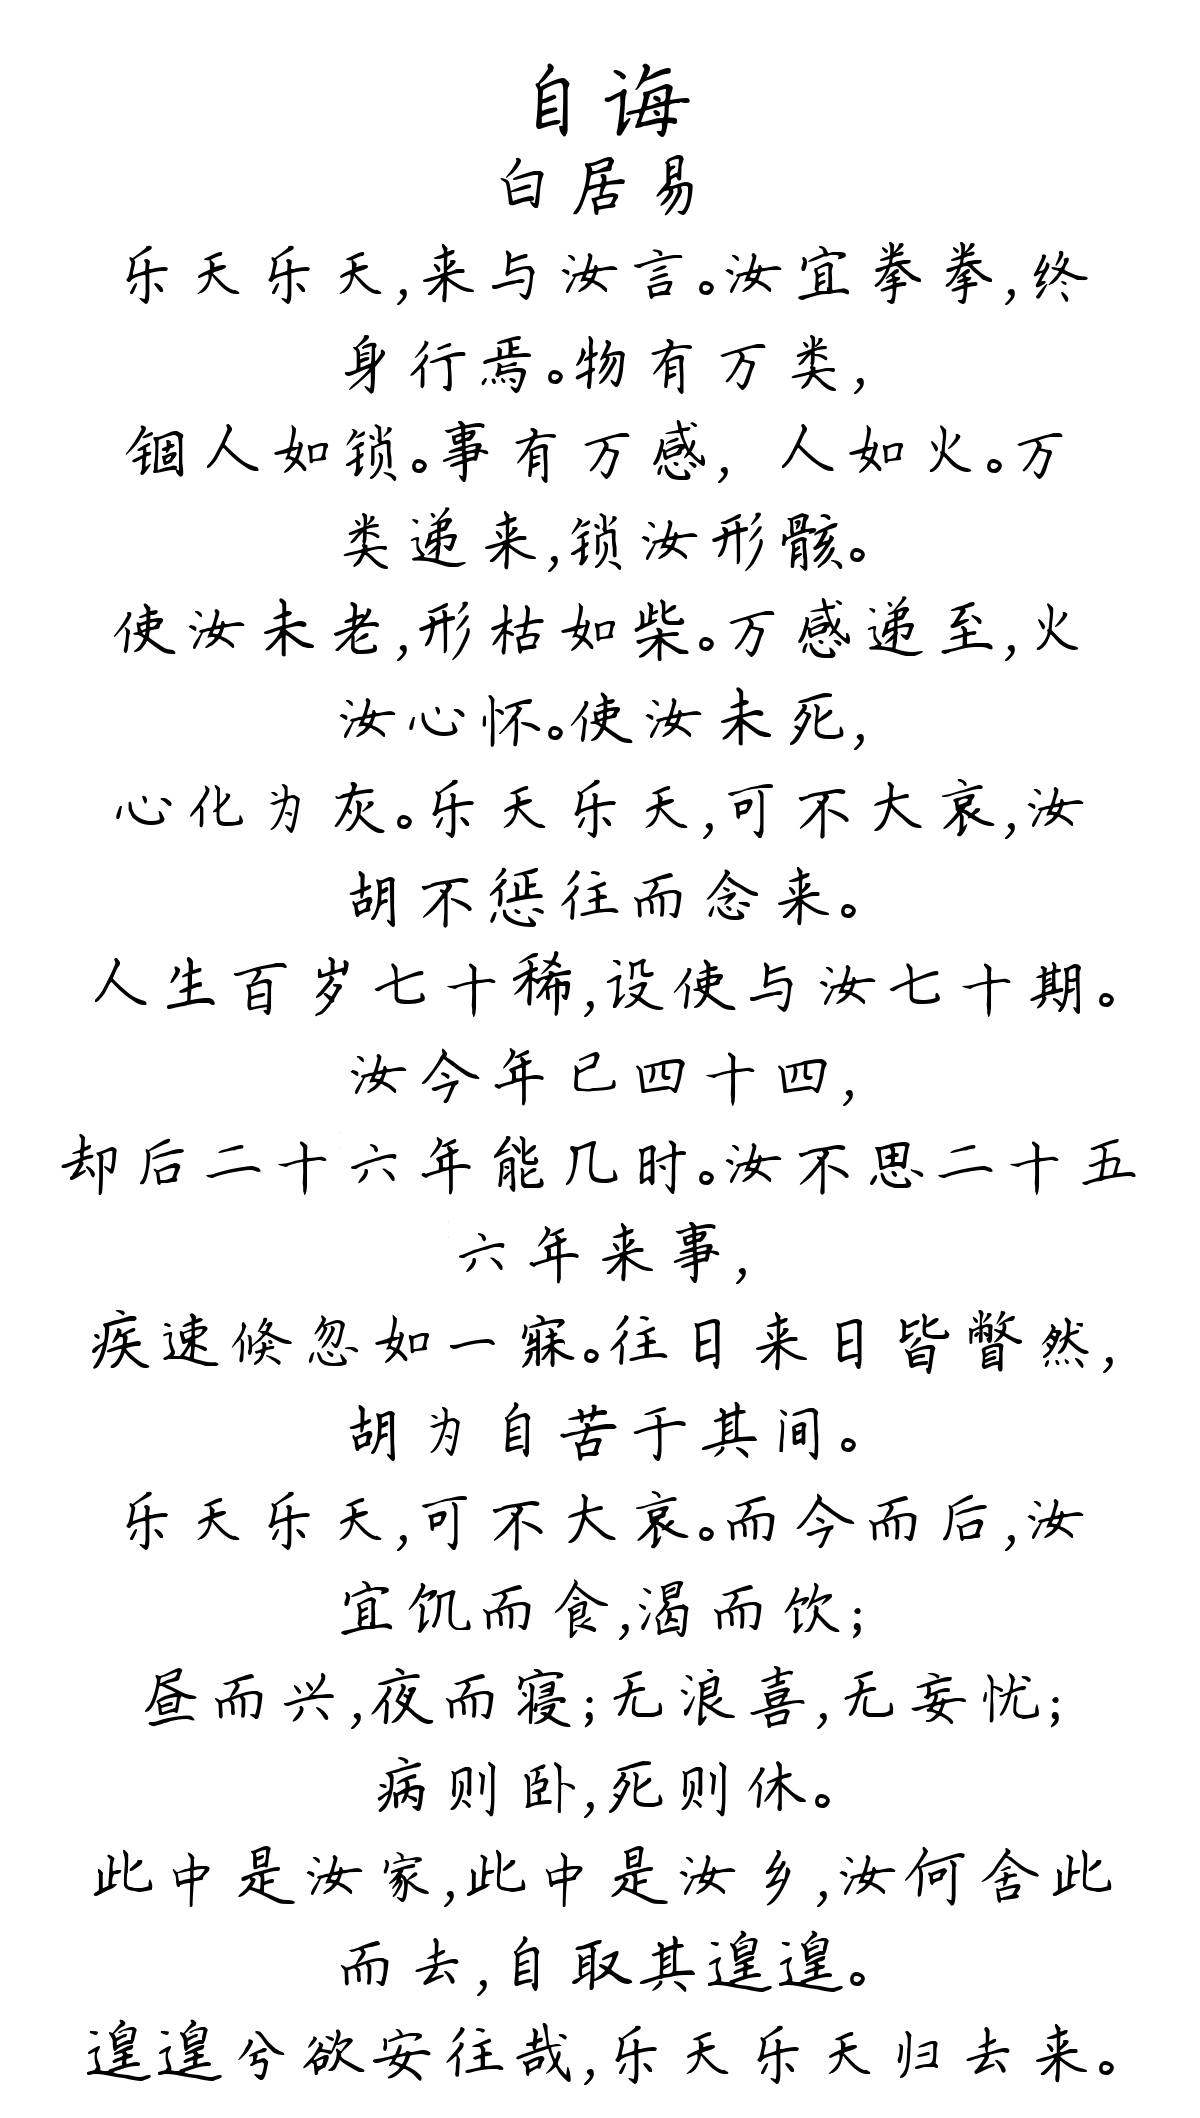 自诲
白居易
乐天乐天,来与汝言。汝宜拳拳,终
身行焉。物有万类,
锢人如锁。事有万感, 人如火。万
类递来,锁汝形骸。
使汝未老,形枯如柴。万感递至,火
汝心怀。使汝未死,
心化为灰。乐天乐天,可不大哀,汝
胡不惩往而念来。
人生百岁七十稀,设使与汝七十期。
汝今年已四十四,
却后二十六年能几时。汝不思二十五
六年来事,
疾速倏忽如一寐。往日来日皆瞥然,
胡为自苦于其间。
乐天乐天,可不大哀。而今而后,汝
宜饥而食,渴而饮;
昼而兴,夜而寝;无浪喜,无妄忧;
病则卧,死则休。
此中是汝家,此中是汝乡,汝何舍此
而去,自取其遑遑。
遑遑兮欲安往哉,乐天乐天归去来。